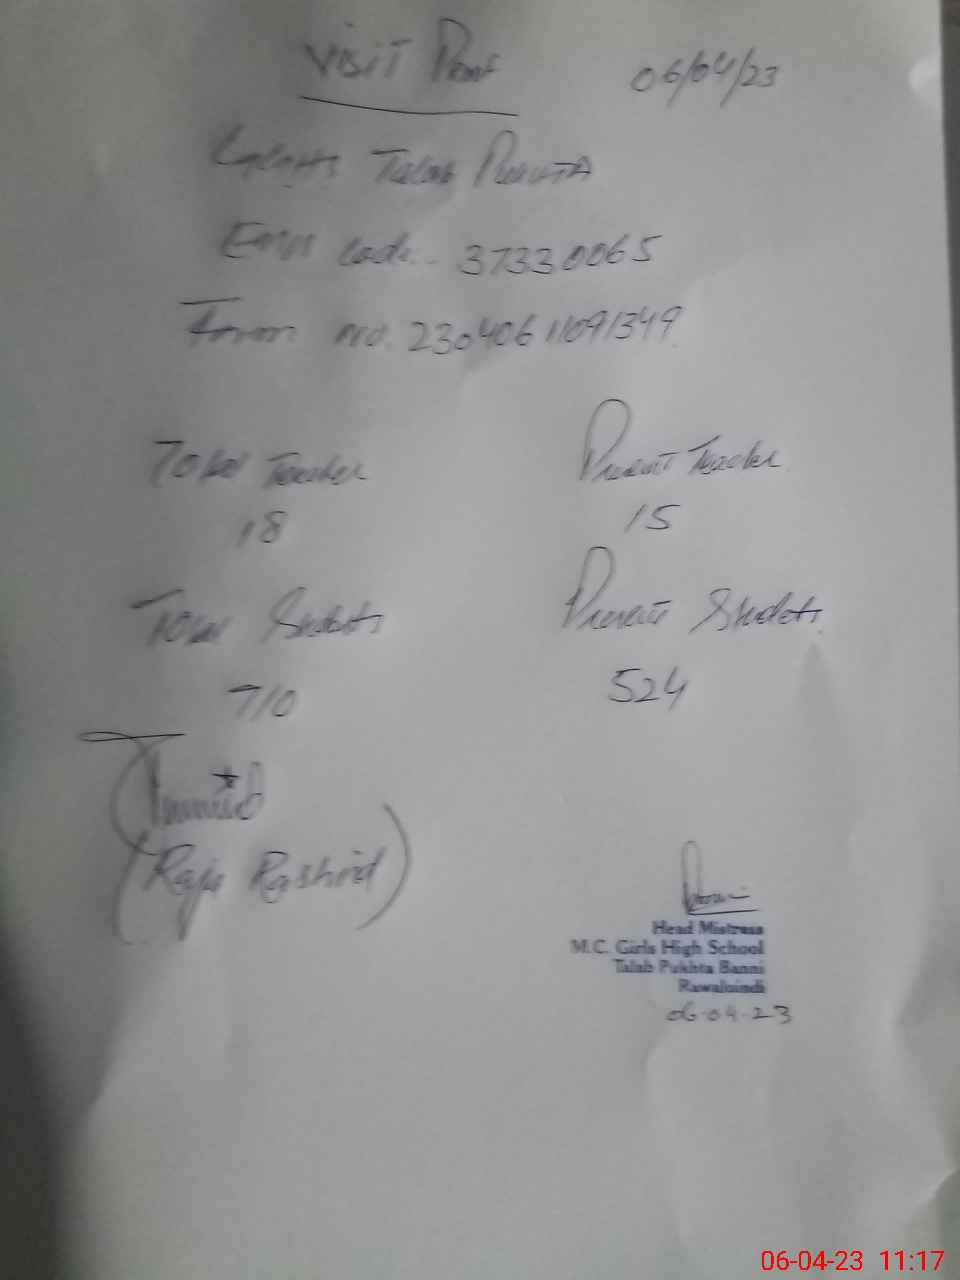 VISIT Proof
06/04/23
Talab Pukhta
Emis code. 37330065
Form no. 23040611091349
Total Teacher Present Teacher
18 15
Total Students Present Students
710 524
(Raja Rashid)
Head Mistress
M.C. Girls High School
Talab Pukhta Banni
Rawalpindi
06.04.23
06-04-23 11:17